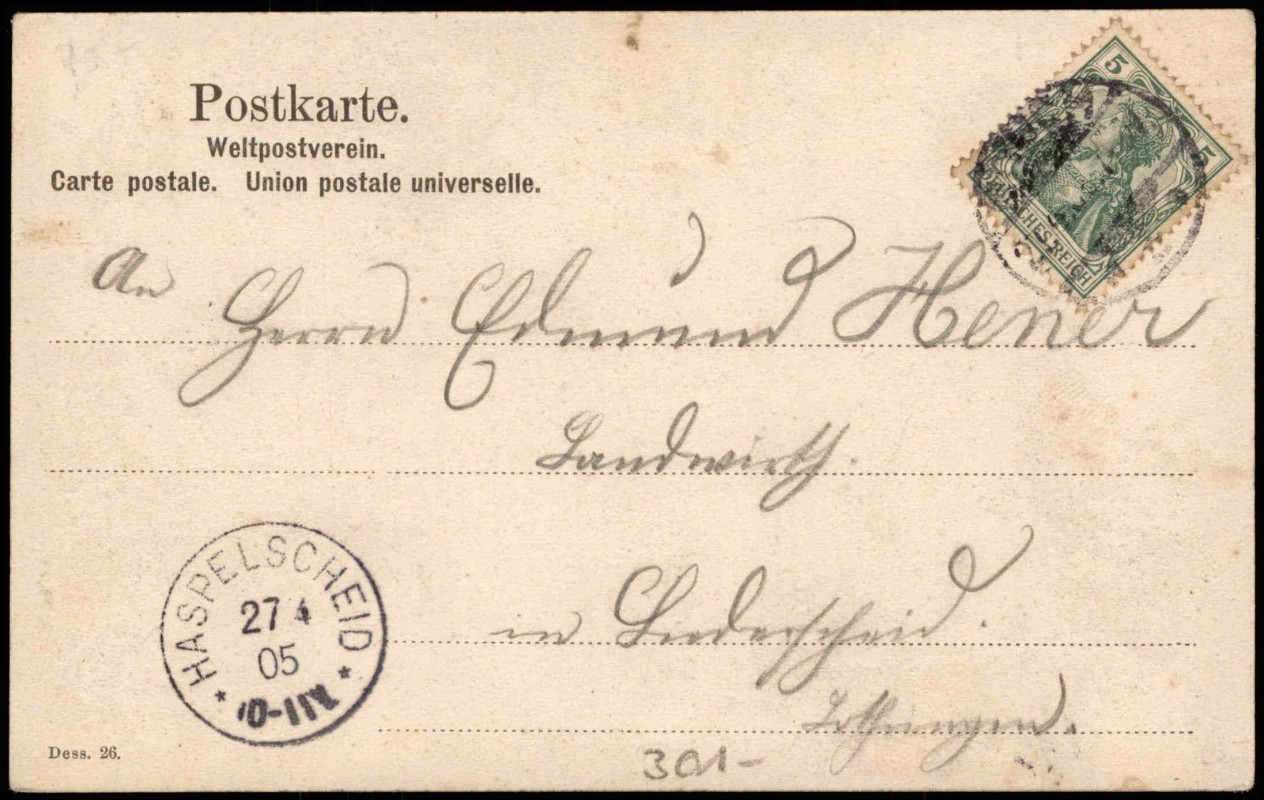 Postkarte.
Weltpostverein.
Carte postale. Union postale universelle.
5
5
DEUTSCHES REICH
An
Herrn Edmund Hener
Landwirth.
in Liederscheid.
Lothringen.
HASPELSCHEID
27 4
05
Dess. 26.
301-